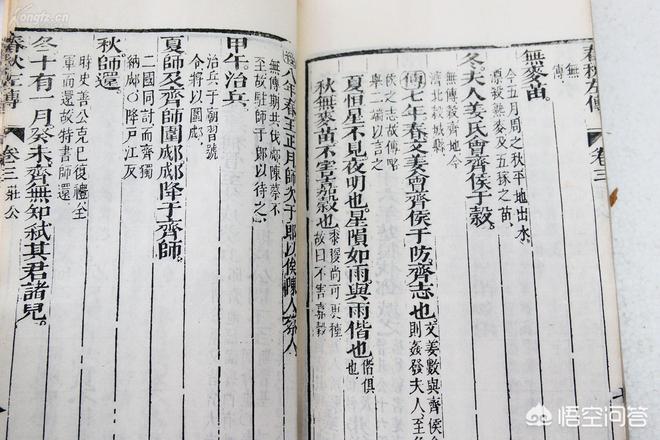 春秋左傳 卷三
無
傳
無麥苗。
今五月周之秋平地出水
漂殺熟麥及五稼之苗
冬夫人姜氏會齊侯于穀。
無傳穀齊地今
濟北穀城縣
傳七年春文姜會齊侯于防齊志也
文姜數與齊侯會
則姦發夫人至
侯之志故傳略
舉二端以言之
夏恒星不見夜明也星隕如雨與雨偕也
偕俱
也
秋無麥苗不害嘉穀也
黍稷尚可更種
故曰不害嘉穀
八年春王正月師次于郎以俟陳人蔡人
無傳期共伐郕陳蔡不
至故駐師于郎以待之
甲午治兵
治兵于朝習號
令將以圍郕
夏師及齊師圍郕郕降于齊師
二國同討而齊獨
納郕○降戶江反
秋師還
時史善公克已復禮全
軍而還故特書師還
冬十有一月癸未齊無知弒其君諸兒。
春秋左傳 卷三 莊公
悟空问答